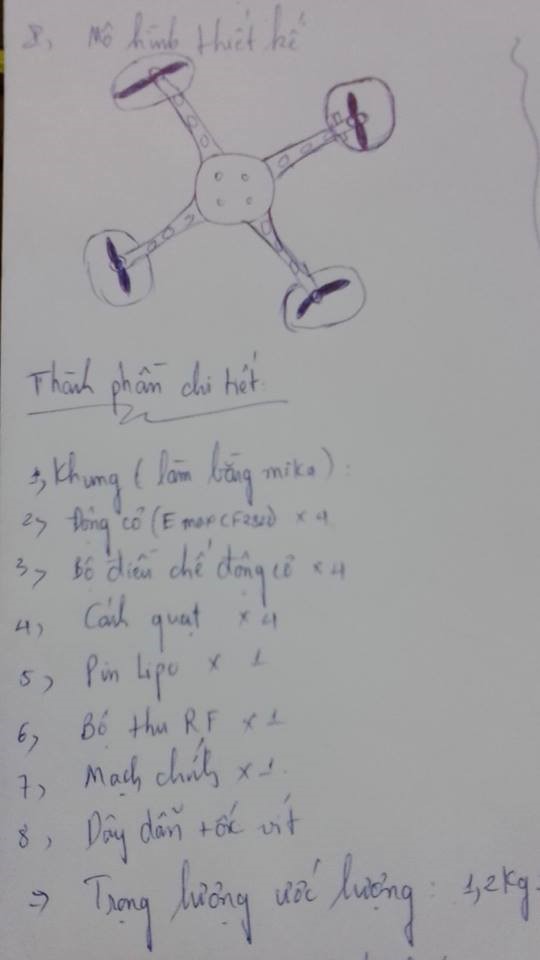 8, Mô hình thiết kế
Thành phần chi tiết:
1, Khung (làm bằng mika):
2, Động cơ (Emax CF2822) x 4
3, Bộ điều chế động cơ x 4
4, Cánh quạt x 4
5, Pin Lipo x 1
6, Bộ thu RF x 1
7, Mạch chính x 1.
8, Dây dẫn + ốc vít
=> Trọng lượng ước lượng: 1,2Kg.